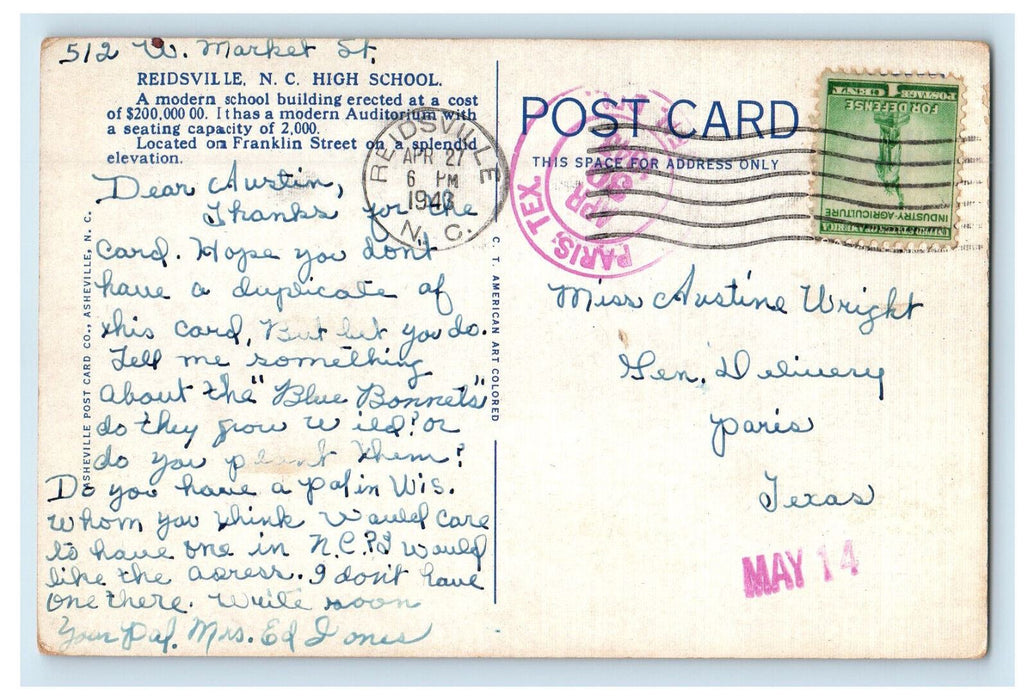 512 W. Market St.
REIDSVILLE, N. C. HIGH SCHOOL.
A modern school building erected at a cost
of $200,000 00. It has a modern Auditorium with
a seating capacity of 2,000.
Located on Franklin Street on a splendid
elevation.
Dear Austin,
Thanks for the
card. Hope you don't
have a duplicate of
this card, But bet you do.
Tell me something
about the "Blue Bonnets"
do they grow wild? or
do you plant them?
Do you have a pal in Wis.
whom you think would care
to have one in N.C.? I would
like the adress. I don't have
one there. Write soon
Your Pal. Mrs. Ed Jones
ASHEVILLE POST CARD CO., ASHEVILLE, N. C.
C. T. AMERICAN ART COLORED
POST CARD
THIS SPACE FOR ADDRESS ONLY
REIDSVILLE
APR 27
6 PM
1943
N. C.
PARIS, TEX.
APR
30
1¢ POSTAGE
FOR DEFENSE
INDUSTRY-AGRICULTURE
UNITED STATES OF AMERICA
Miss Austine Wright
Gen. Delivery
Paris
Texas
MAY 14